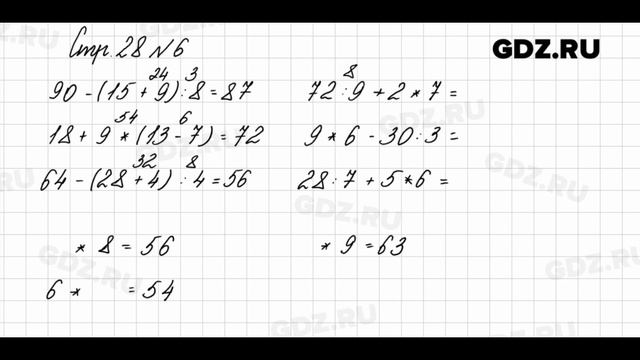 Стр. 28 №6
GDZ.RU
24 3
90 - (15 + 9) : 8 = 87
54 6
18 + 9 * (13 - 7) = 72
32 8
64 - (28 + 4) : 4 = 56
* 8 = 56
6 * = 54
8
72 : 9 + 2 * 7 =
9 * 6 - 30 : 3 =
28 : 7 + 5 * 6 =
* 9 = 63
GDZ.RU
GDZ.RU
GDZ.RU
GDZ.RU
GDZ.RU
GDZ.RU